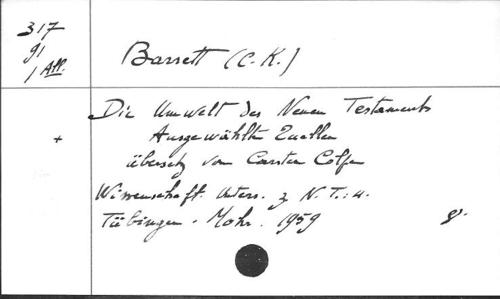 317
91
1 All.
Barrett (C. K.)
Die Umwelt des Neuen Testaments
+ Ausgewählte Quellen
übersetz von Carsten Colpe
Wissenschaft. Unters. z N. T.: 4.
Tübingen. Mohr. 1959 8°.